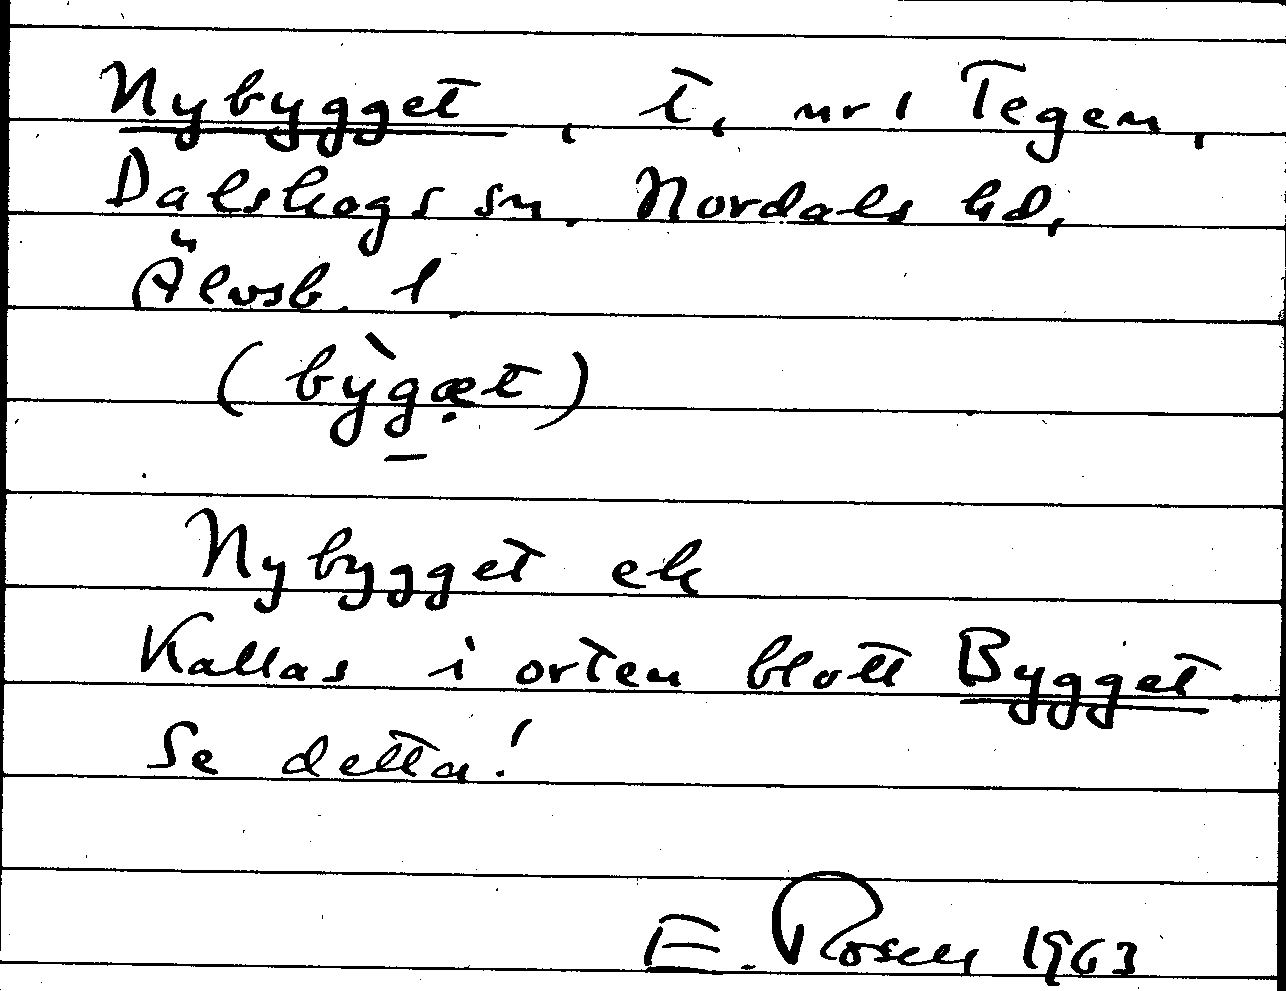 Nybygget, t, nr 1 Tegen,
Dalskogs sn. Nordals hd,
Älvsb. l.
(bỳg̱æ̣t)
Nybygget ek
Kallas i orten blott Bygget.
Se detta!
E. Rosell 1963